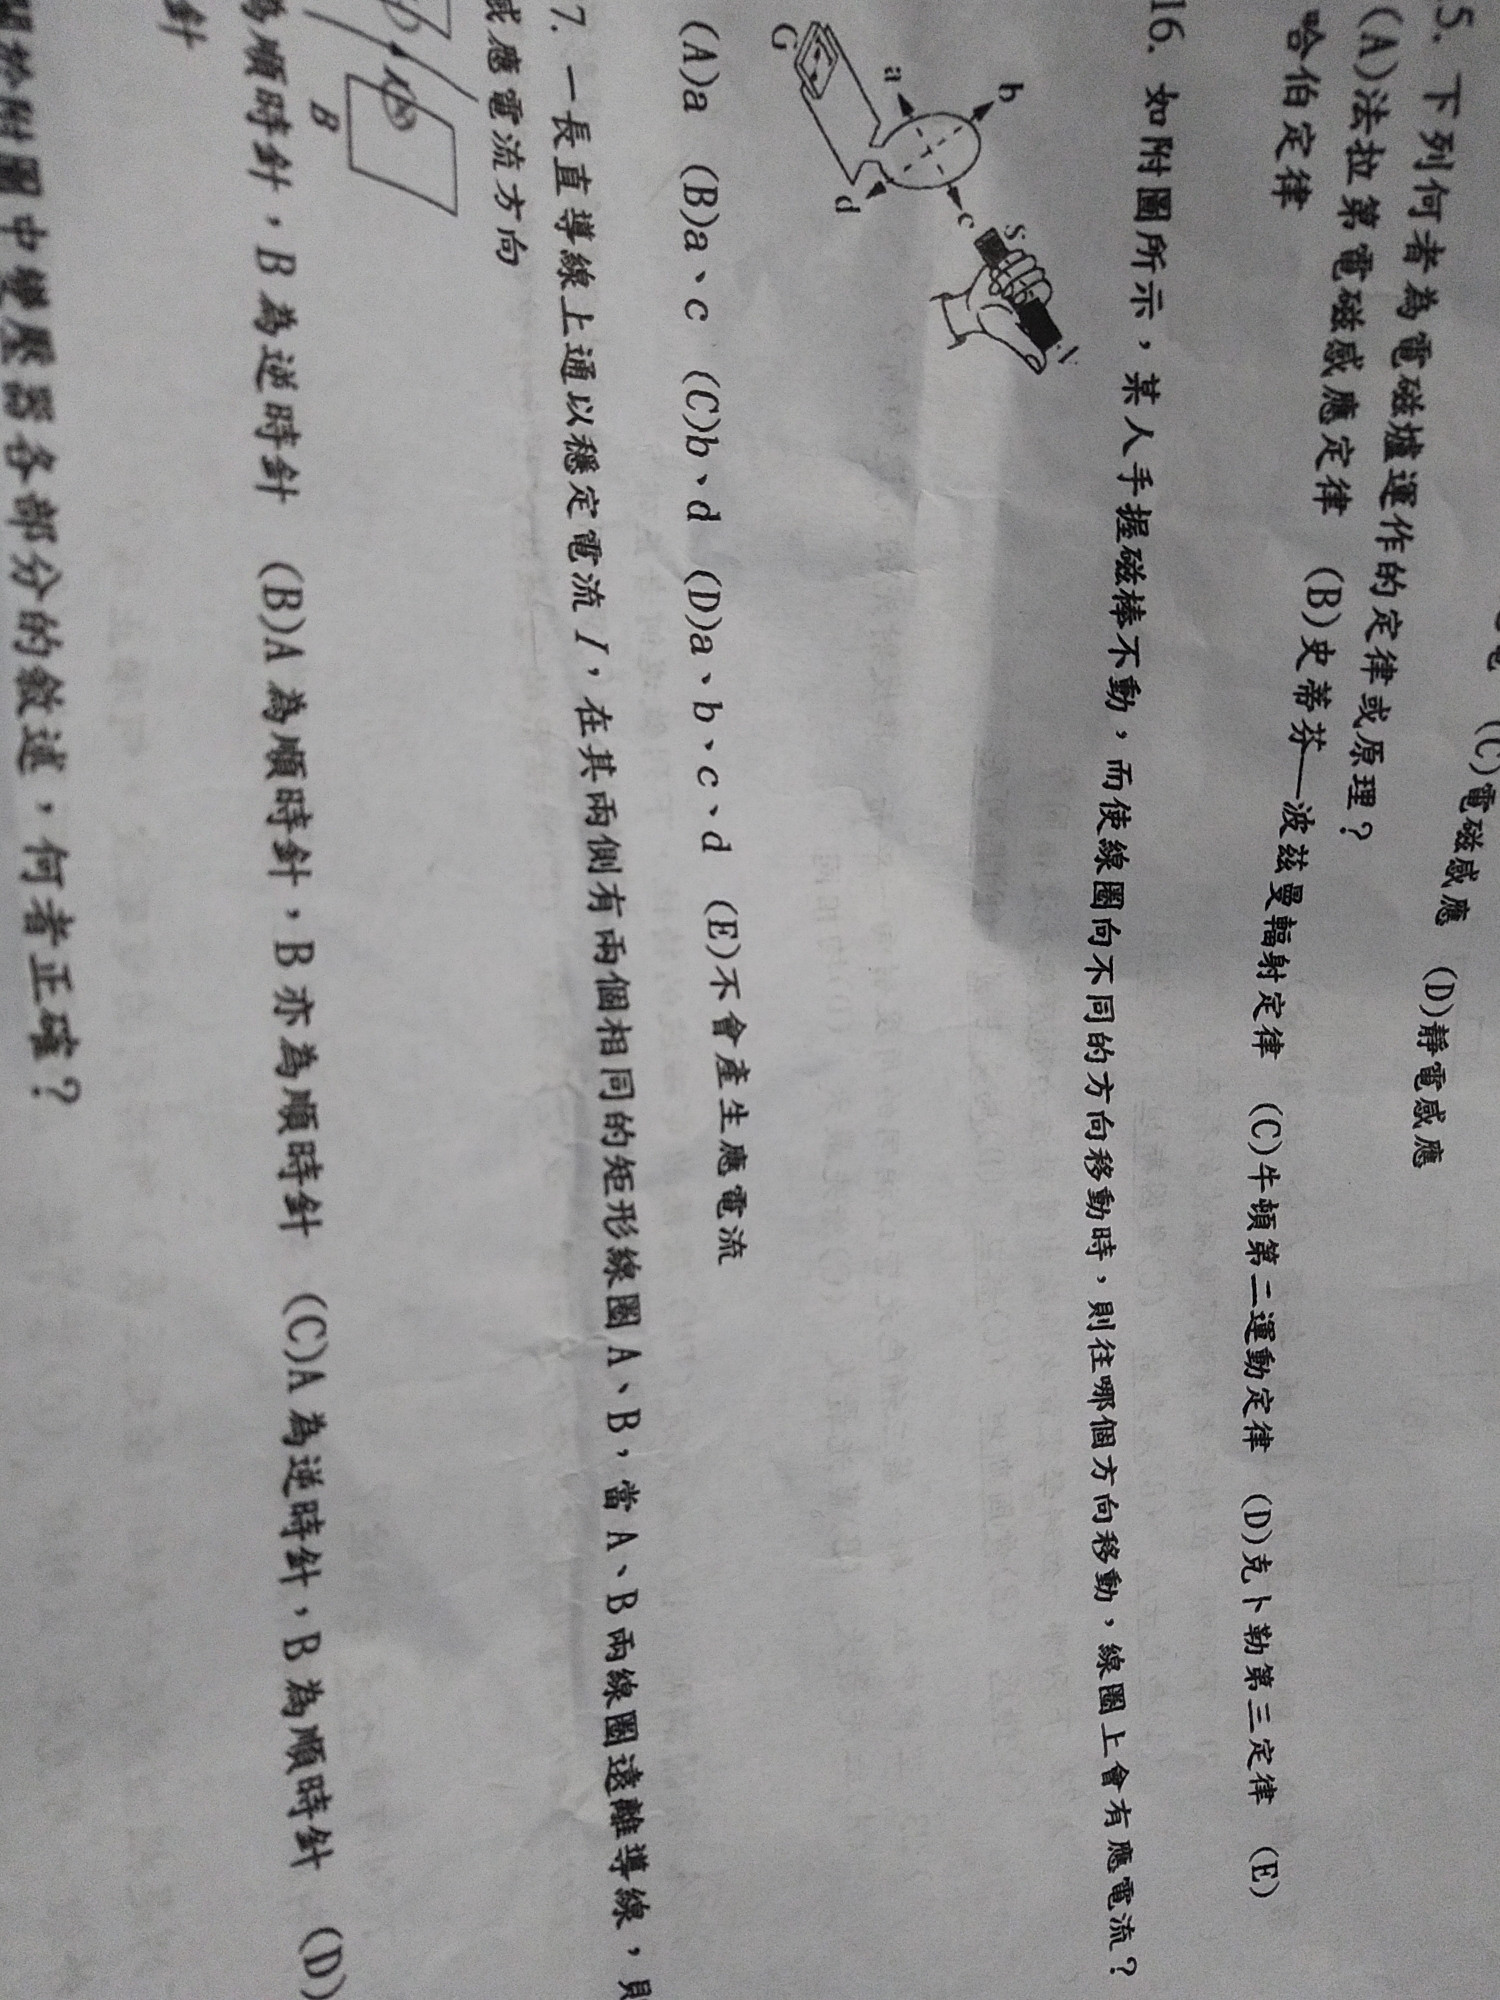 (C)電磁感應 (D)靜電感應
5. 下列何者為電磁爐運作的定律或原理？
(A)法拉第電磁感應定律 (B)史蒂芬—波茲曼輻射定律 (C)牛頓第二運動定律 (D)克卜勒第三定律 (E)
哈伯定律
16. 如附圖所示，某人手握磁棒不動，而使線圈向不同的方向移動時，則往哪個方向移動，線圈上會有應電流？
b
a
c
d
G
S
N
(A)a (B)a、c (C)b、d (D)a、b、c、d (E)不會產生應電流
7. 一長直導線上通以穩定電流 I，在其兩側有兩個相同的矩形線圈 A、B，當 A、B 兩線圈遠離導線，則
感應電流方向
B
為順時針，B 為逆時針 (B)A 為順時針，B 亦為順時針 (C)A 為逆時針，B 為順時針 (D)
針
關於附圖中變壓器各部分的敘述，何者正確？